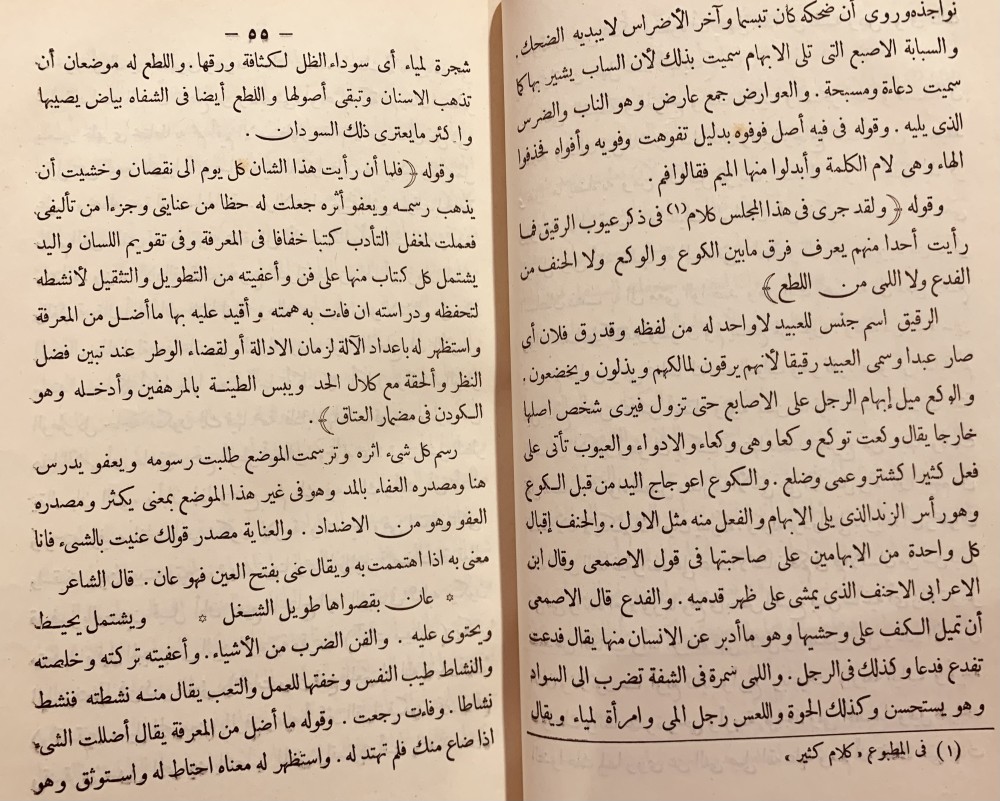 نواجذه وروى أن ضحكه كان تبسما وآخر الأضراس لا يبديه الضحك.
والسبابة الاصبع التى تلى الابهام سميت بذلك لأن الساب يشير بها كما
سميت دعاءة ومسبحة . والعوارض جمع عارض وهو الناب والضرس
الذى يليه . وقوله فى فيه أصل فوفوه بدليل تفوهت وفويه وأفواه فحذفوا
الهاء وهى لام الكلمة وأبدلوا منها الميم فقالوا فم .
وقوله ﴿ ولقد جرى فى هذا المجلس كلام (١) فى ذكر عيوب الرقيق فما
رأيت أحدا منهم يعرف فرق مابين الكوع والوكع ولا الحنف من
الفدع ولا اللمى من اللطع ﴾
الرقيق اسم جنس للعبيد لاواحد له من لفظه وقد رق فلان أى
صار عبدا وسمى العبيد رقيقا لأنهم يرقون لمالكهم ويذلون ويخضعون .
والوكع ميل إبهام الرجل على الاصابع حتى تزول فيرى شخص اصلها
خارجا يقال وكعت توكع وكعا وهى وكعاء والادواء والعيوب تأتى على
فعل كثيرا كشتر وعمى وضلع . والكوع اعوجاج اليد من قبل الكوع
وهو رأس الزند الذى يلى الابهام والفعل منه مثل الاول . والحنف إقبال
كل واحدة من الابهامين على صاحبتها فى قول الاصمعى وقال ابن
الاعرابى الاحنف الذى يمشى على ظهر قدميه . والفدع قال الاصمعى
أن تميل الكف على وحشيها وهو ما أدبر عن الانسان منها يقال فدعت
تفدع فدعا وكذلك فى الرجل . واللمى سمرة فى الشفة تضرب الى السواد
وهو يستحسن وكذلك الحوة واللعس رجل المى وامرأة لمياء ويقال
(١) فى المطبوع «كلام كثير»
— ٥٥ —
شجرة لمياء أى سوداء الظل لكثافة ورقها . واللطع له موضعان أن
تذهب الاسنان وتبقى أصولها واللطع أيضا فى الشفاه بياض يصيبها
واكثر مايعترى ذلك السودان .
وقوله ﴿ فلما أن رأيت هذا الشان كل يوم الى نقصان وخشيت أن
يذهب رسمه ويعفو أثره جعلت له حظا من عنايتى وجزءا من تأليفى
فعملت لمغفل التأدب كتبا خفافا فى المعرفة وفى تقويم اللسان واليد
يشتمل كل كتاب منها على فن وأعفيته من التطويل والتثقيل لأنشطه
لتحفظه ودراسته ان فاءت به همته وأقيد عليه بها ماأضل من المعرفة
واستظهر له باعداد الآلة لزمان الادالة أو لقضاء الوطر عند تبين فضل
النظر وألحقة مع كلال الحد ويبس الطينة بالمرهفين وأدخله وهو
الكودن فى مضمار العتاق ﴾ .
رسم كل شىء اثره وترسمت الموضع طلبت رسومه ويعفو يدرس
هنا ومصدره العفاء بالمد وهو فى غير هذا الموضع بمعنى يكثر ومصدره
العفو وهو من الاضداد . والعناية مصدر قولك عنيت بالشىء فانا
معنى به اذا اهتممت به ويقال عنى بفتح العين فهو عان . قال الشاعر
* عان بقصواها طويل الشغل * ويشتمل يحيط
ويحتوى عليه . والفن الضرب من الأشياء . وأعفيته تركته وخلصته
والنشاط طيب النفس وخفتها للعمل والتعب يقال منه نشطته فنشط
نشاطا . وفاءت رجعت . وقوله ما أضل من المعرفة يقال أضللت الشىء
اذا ضاع منك فلم تهتد له . واستظهر له معناه احتاط له واستوثق وهو